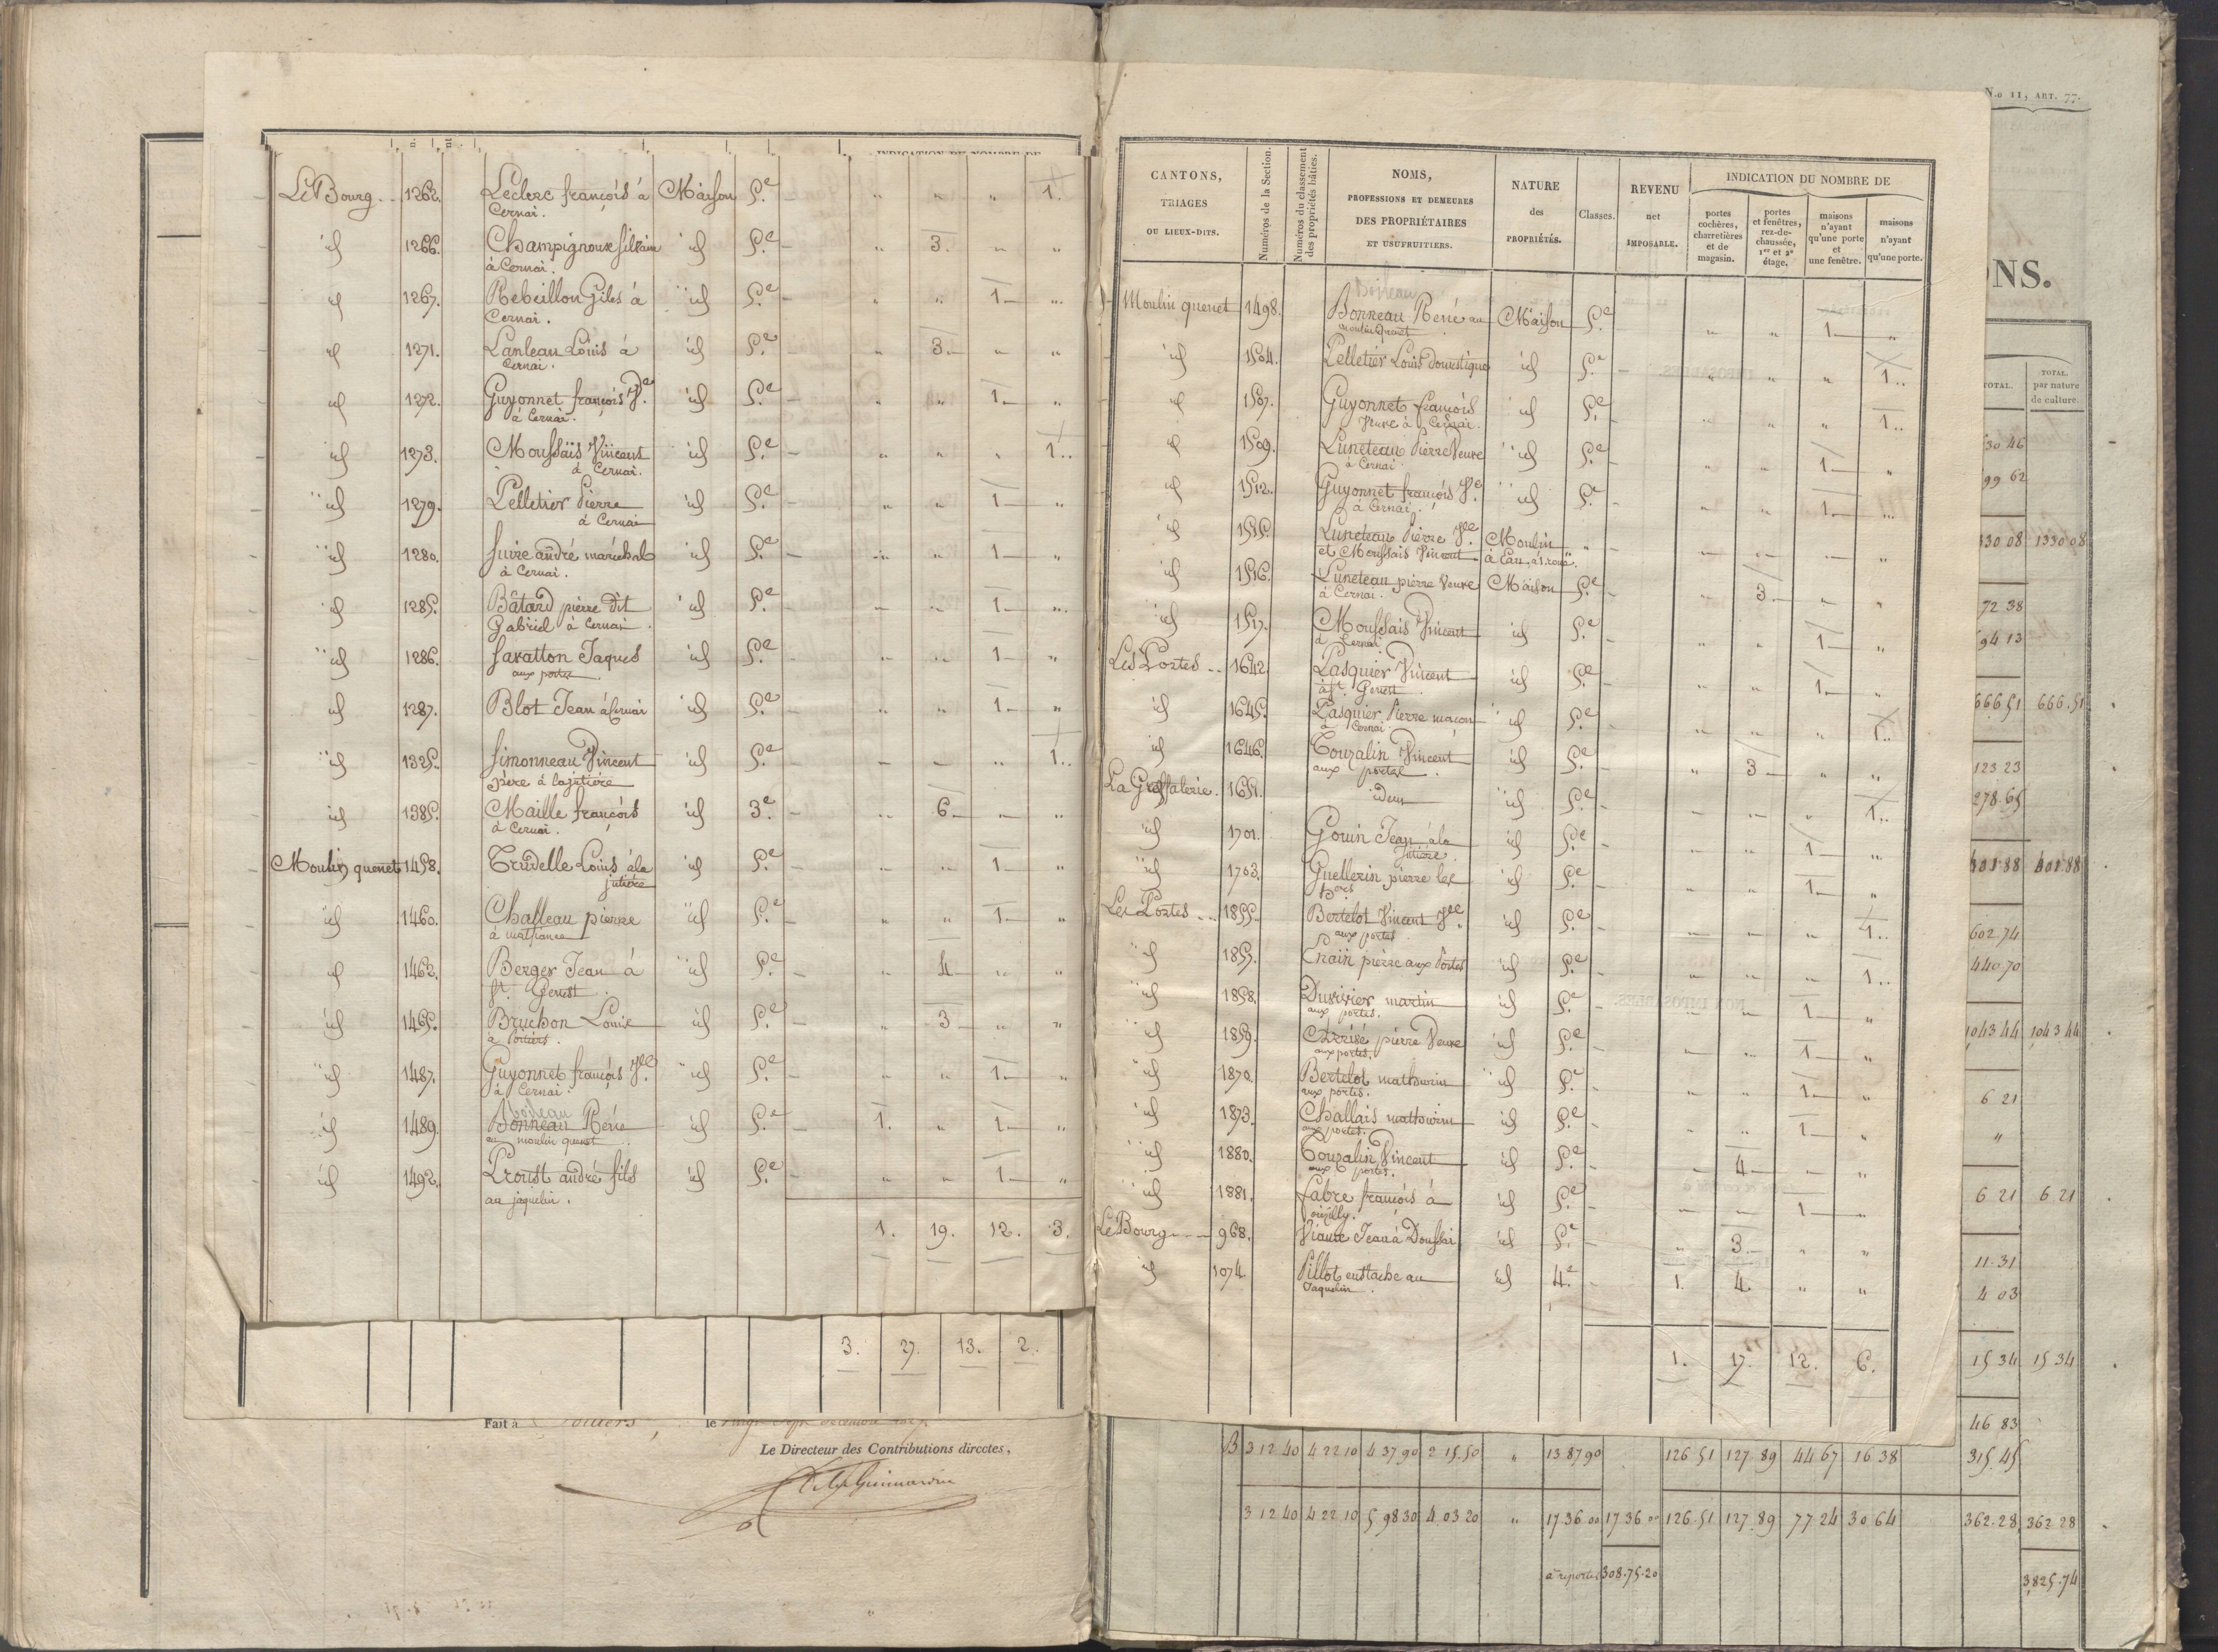 INDICATION DU NOMBRE DE
Le Bourg 1262. Leclerc françois à Maison 5.e " " " 1.
Cernai.
id 1266. Champignoux Silvain id 5.e " 3. " "
à Cernai.
id 1267. Rebeillon Giles à id 5.e " " 1 "
Cernai.
id 1271. Lanleau Louis à id 5.e " 3. " "
Cernai.
id 1272. Guyonnet françois Ve. id 5.e " " 1 "
à Cernai.
id 1273. Moussais Vincent id 5.e " " " 1..
à Cernai.
id 1279. Pelletier Pierre id 5.e " " 1 "
à Cernai
id 1280. Suire andré maréchal id 5.e " " 1 "
à Cernai.
id 1285. Bâtard pierre dit id 5.e " " 1 "
Gabriel à Cernai.
id 1286. Savatton Jaques id 5.e " " 1 "
aux portes.
id 1287. Blot Jean à Cernai id 5.e " " 1 "
id 1325. Simonneau Vincent id 5.e " " " 1..
père à la jutière
id 1385. Maille françois id 3.e " 6. " "
à Cernai.
Moulin quenet 1458. Trudelle Louis à la id 5.e " " 1 "
jutière
id 1460. Challeau pierre id 5.e " " 1 "
à
id 1462. Berger Jean à id 5.e " 4 " "
St. Genest.
id 1465. Bruchon Louis id 5.e " 3 " "
à Poitiers.
id 1487. Guyonnet françois Ve. id 5.e " " 1 "
à Cernai.
Boileau
id 1489. Bonneau Réné id 5.e 1. " 1 "
au moulin quenet
id 1492. Proust andré fils id 5.e " " 1 "
au jaquelin.
1. 19. 12. 3.
3. 27. 13. 2.
Fait à Poitiers, le
Le Directeur des Contributions directes,
CANTONS,
TRIAGES
OU LIEUX-DITS.
Numéros de la Section.
Numéros du classement
des propriétés bâties.
NOMS,
PROFESSIONS ET DEMEURES
DES PROPRIÉTAIRES
ET USUFRUITIERS.
NATURE
des
PROPRIÉTÉS.
Classes.
REVENU
net
IMPOSABLE.
INDICATION DU NOMBRE DE
portes
cochères,
charretières
et de
magasin.
portes
et fenêtres,
rez-de-
chaussée,
1er et 2e
étage.
maisons
n'ayant
qu'une porte
et
une fenêtre.
maisons
n'ayant
qu'une porte.
Moulin quenet 1498. Bonneau Réné au Maison 5.e " " 1 "
moulin Quenet
id 1504. Pelletier Louis domestique id 5.e " " " 1..
id 1507. Guyonnet françois id 5.e " " " 1..
Veuve à Cernai.
id 1509. Luneteau Pierre Veuve id 5.e " " 1 "
à Cernai.
id 1512. Guyonnet françois Ve. id 5.e " " 1 "
à Cernai.
id 1515. Luneteau Pierre Ve. Moulin " " " " "
et Moussais Vincent à Eau, à 1 roue.
id 1516. Luneteau pierre Veuve Maison 5.e " 3 " "
à Cernai.
id 1517. Moussais Vincent id 5.e " " 1 "
à Cernai.
Les Portes 1642. Pasquier Vincent id 5.e " " 1 "
à St. Genest.
id 1645. Pasquier Pierre maçon id 5.e " " " 1..
à Cernai.
id 1646. Touzalin Vincent id 5.e " 3 " "
aux portes.
1651. idem id 5.e " " " 1..
id 1701. Gouin Jean à la id 5.e " " 1 "
Jutière.
id 1703. Guellerin pierre les id 5.e " " 1 "
hres
Les Portes 1855. Bertelot Vincent Ve. id 5.e " " " 1..
aux portes.
id 1857. pierre aux Portes id 5.e " " " 1..
id 1858. Duvivier martin id 5.e " " 1 "
aux portes.
id 1859. pierre Veuve id 5.e " " 1 "
aux portes.
id 1870. Bertelot mathurin id 5.e " " 1 "
aux portes.
id 1873. Challais mathurin id 5.e " " 1 "
aux portes.
id 1880. Touzalin Vincent id 5.e " 4 " "
aux portes.
id 1881. fabre françois à id 5.e " " 1 "
ouzilly.
Le Bourg 968. Viaute Jean à Doussai id 5.e " 3 " "
id 1074. Pillot eustache au id 4.e 1. 4. " "
Jaquelin.
1. 17. 12. 6.
N.o 11, ART. 77.
ONS.
TOTAL.
TOTAL.
par nature
de culture.
30 46
99 62
330 08 1330 08
72 38
94 13
666 51 666.51
123 23
278.65
401 88 401 88
602 74
440 70
1043 44 1043 44
6 21
"
6 21 6 21
11.31
4 03
15 34 15 34
46 83
B 3 12 40 4 22 10 4 37 90 2 15.50 " 13 87 90 126 51 127 89 44 67 16 38 315.45
3 12 40 4 22 10 5 98 30 4 03 20 " 17 36 00 17 36 00 126.51 127.89 77 24 30 64 362.28 362 28
à reporter 308.75.20 3825.74